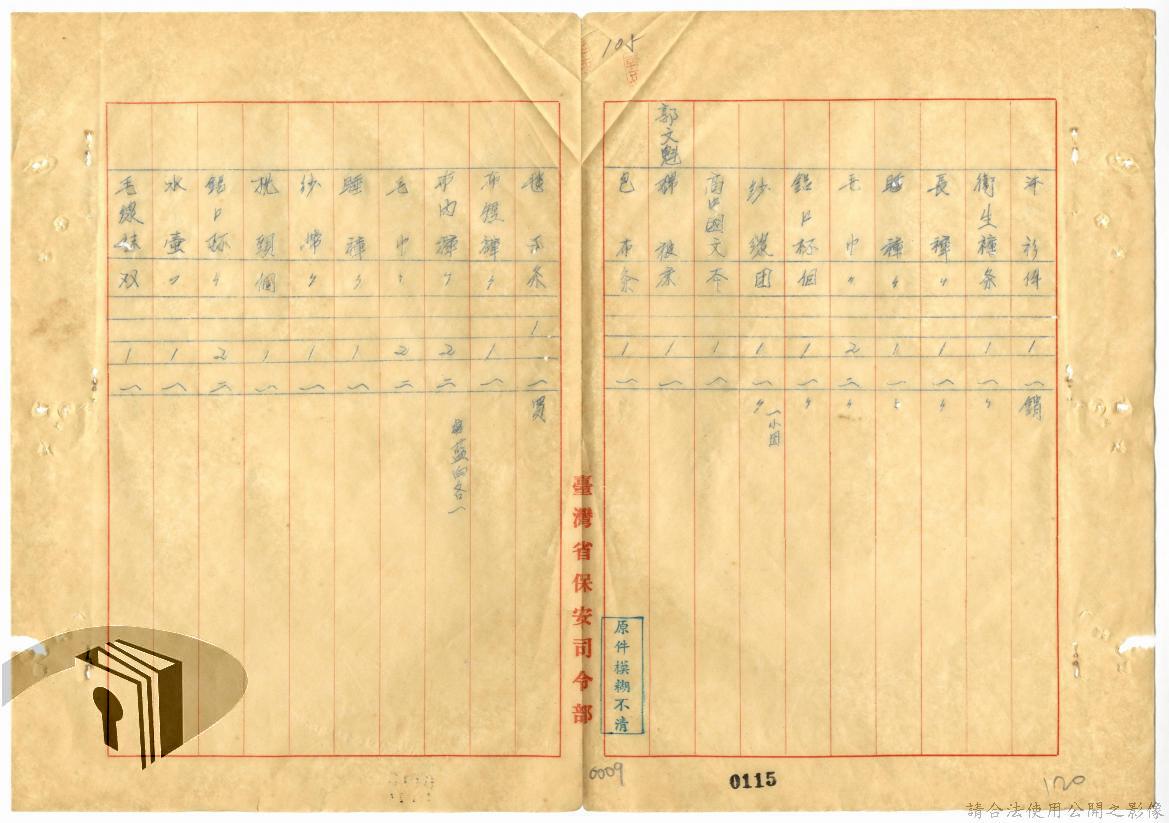 105
汗衫件 1 一 銷
衛生褲条 1 一 〃
長褲〃 1 一 〃
睡褲〃 1 一 〃
毛巾〃 2 二 〃
鋁口杯個 1 一 〃
紗線团 1 一 〃 一小团
高中國文本 1 一
郭文魁 棉被床 1 一
包布条 1 一
毯子条 1 一 買
布短褲〃 1 一
布内褲〃 2 二 藍白各一
毛巾〃 2 二
睡褲〃 1 一
紗帶〃 1 一
枕頭個 1 一
鋁口杯〃 2 二
水壺〃 1 一
毛線袜双 1 一
臺灣省保安司令部
原件模糊不清
6009
0115
120
請合法使用公開之影像